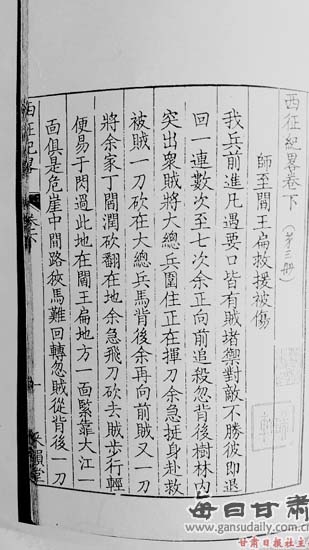 西征紀畧卷下（第三册）
師至閻王扁救援被傷
我兵前進凡遇要口皆有賊堵禦對敵不勝彼即退
回一連數次至七次余正向前追殺忽背後樹林内
突出衆賊將大總兵圍住正在揮刀余急挺身赴救
被賊一刀砍在大總兵馬背後余再向前賊又一刀
將余家丁閻潤砍翻在地余急飛刀砍去賊步行輕
便易于閃過此地在閻王扁地方一面緊靠大江一
面俱是危崖中間路狹馬難回轉忽賊從背後一刀
西征紀畧
一
每日甘肃
www.gansudaily.com.c
甘肃日报社主